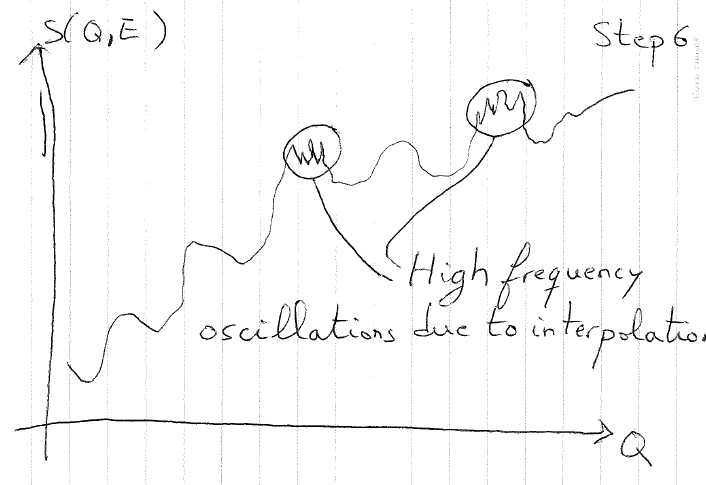 S(Q,E)
Step 6
High frequency
oscillations due to interpolatio
Q